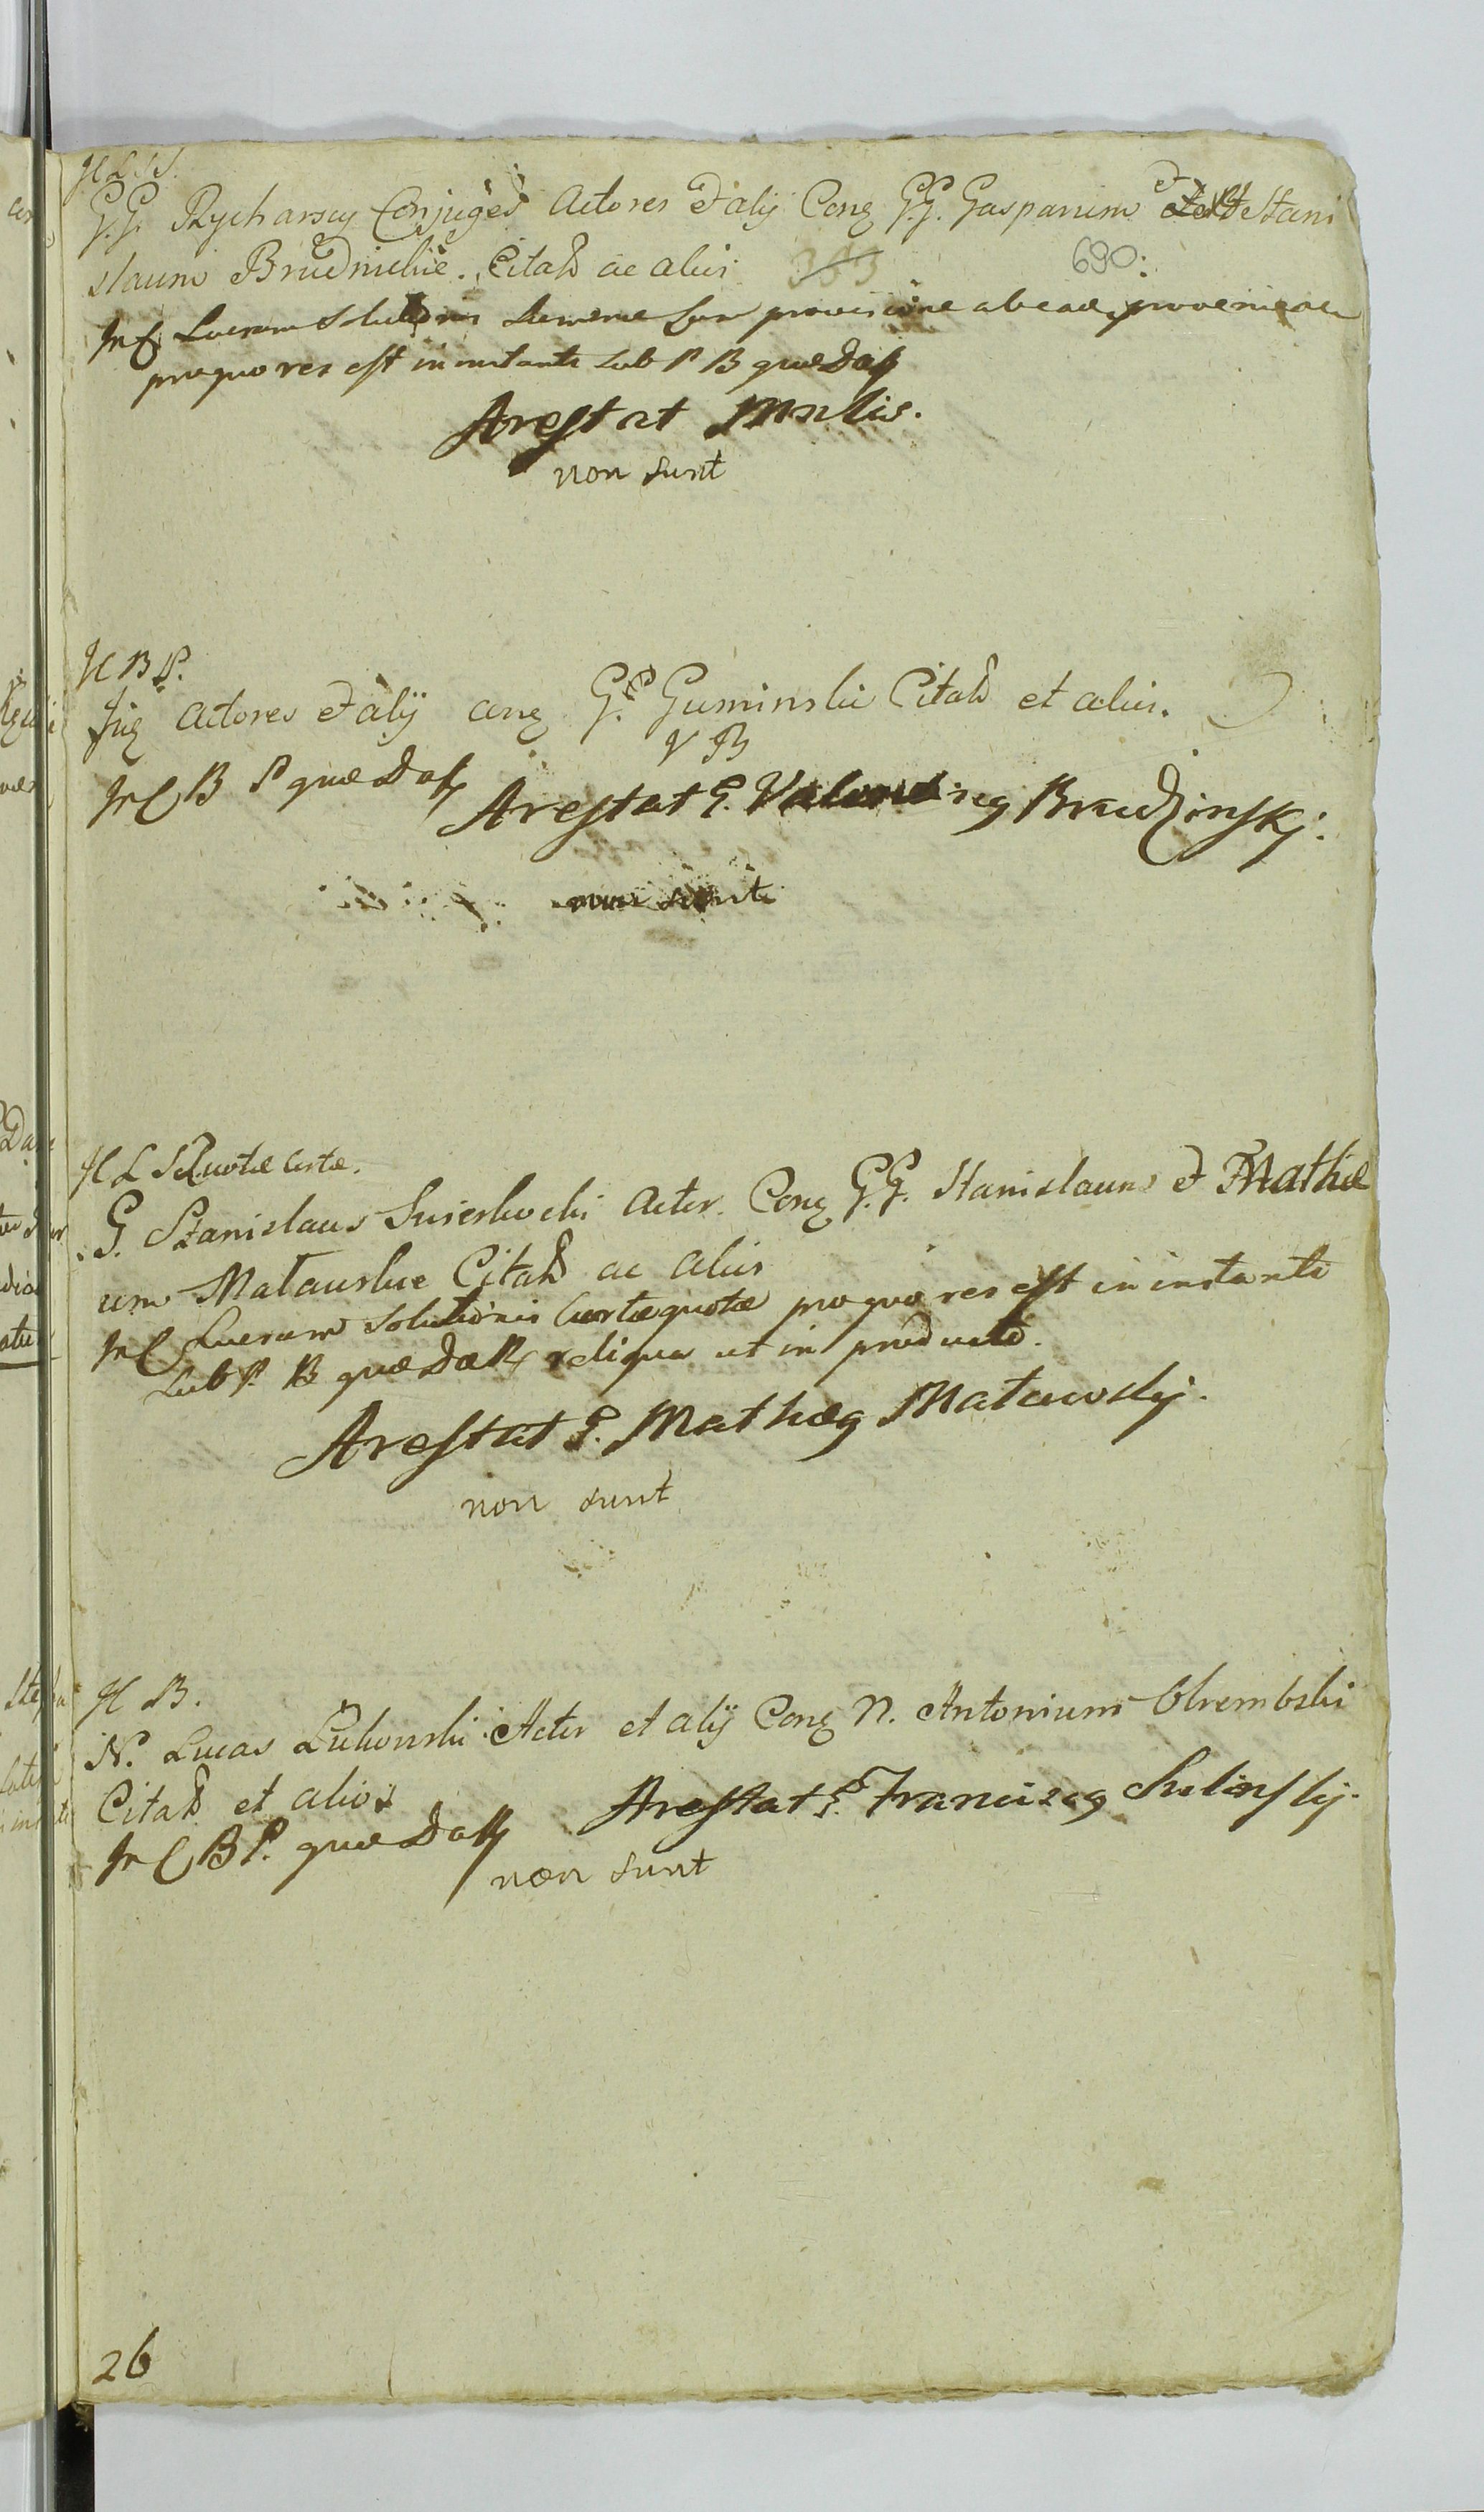 H L S S.
G.G. Rycharscy Conjuges Actores et alij Conq G.G. Gasparum et Stani
slaum Brudnickie. Citatt ac alios 363 690.
In C Lucrum solutionis summe cum provisione ab eadem
proquo res est in instanti sub P B quæ datt
Arestat Multis.
non sunt
H B P.
Jiq Actores et alij conq G. Guminskie Citatt et alios.
V B
In C B P quæ datt Arestat G. Brudzinskj.
non sunt
H L S quotæ certæ.
G. Stanislaus Suieskocki Actor. Conq G.G. Stanislaum et Mathæ
um Matauskie Citatt ac alios
In C Lucrum solutionis certæ quotæ proquo res est in instanti
sub P. B quæ datt reliqua ut in producto.
Arestat G. Mathæq Matawskij.
non sunt
H B.
N. Lucas Lukonski Actor et alij Conq N. Antonium Obrembski
Citatt et alios Arestat G. Franciscq Sulinskij.
In C B P. quæ datt
non sunt
26